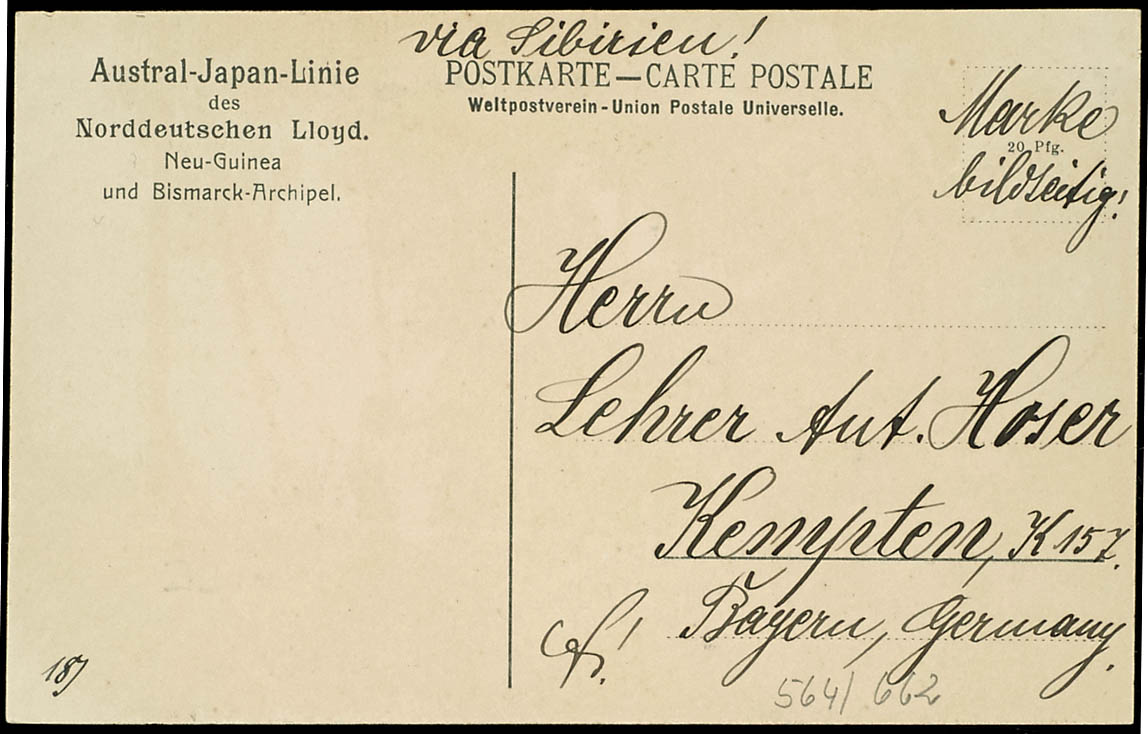 via Sibirien!
Austral-Japan-Linie
des
Norddeutschen Lloyd.
Neu-Guinea
und Bismarck-Archipel.
POSTKARTE—CARTE POSTALE
Weltpostverein-Union Postale Universelle.
Marke
20 Pfg.
bildseitig!
Herrn
Lehrer Ant. Hoser
Kempten, K 157.
Bayern, Germany.
564/ 662